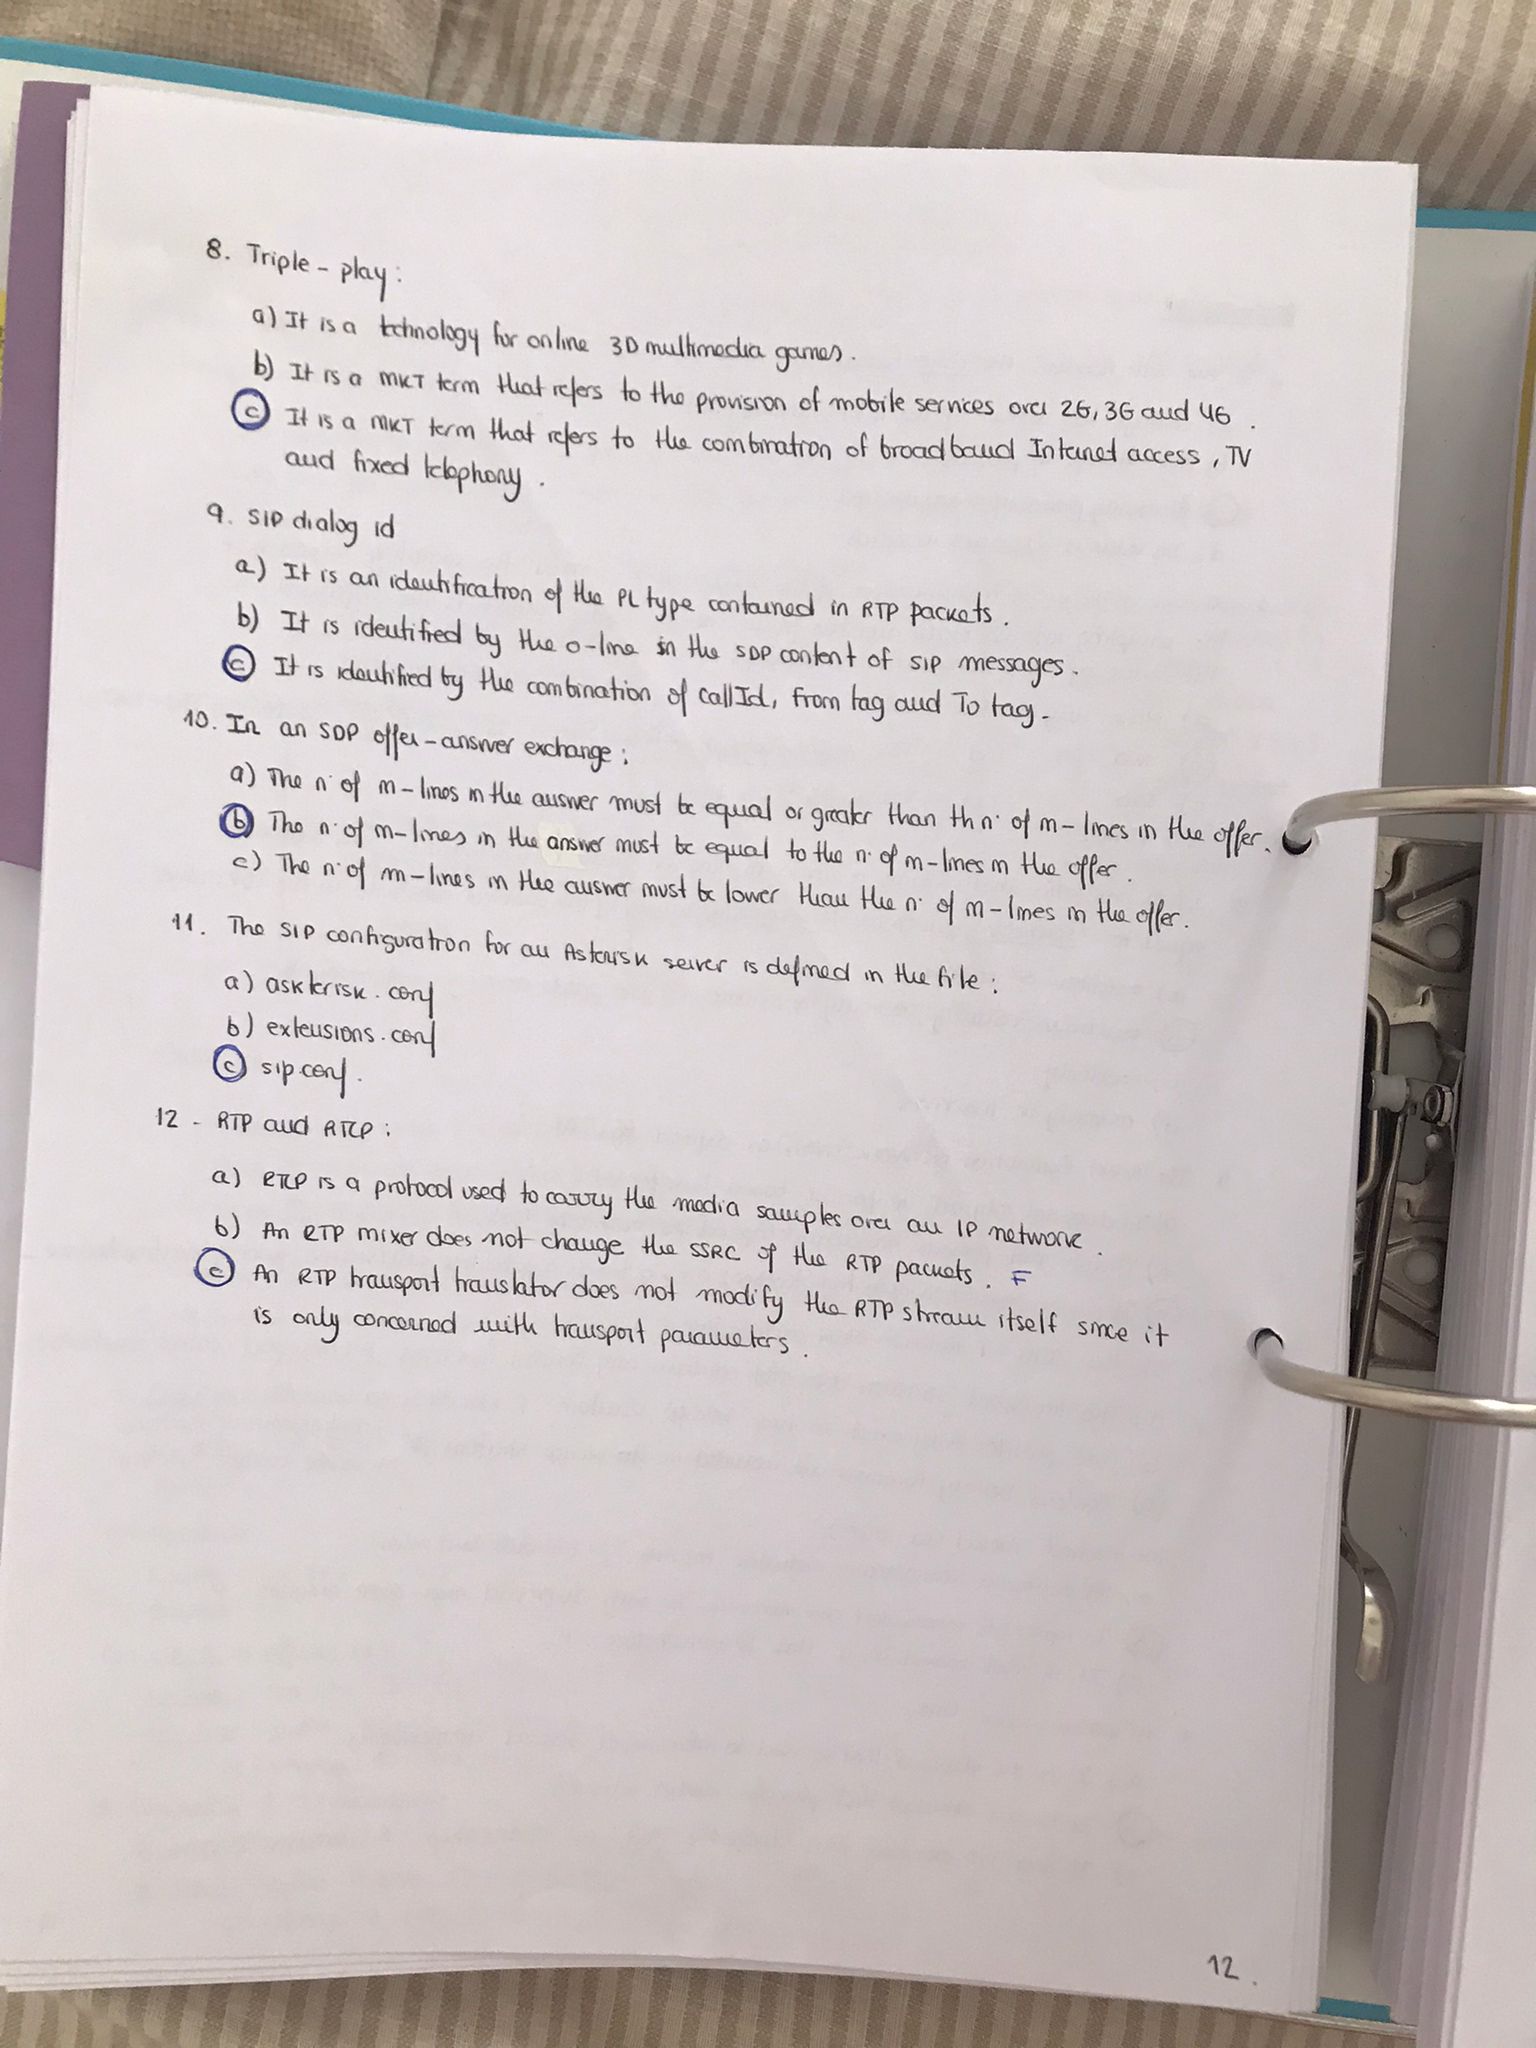 8. Triple - play :
a) It is a technology for online 3D multimedia games.
b) It is a MKT term that refers to the provision of mobile services over 2G, 3G and 4G.
c) It is a MKT term that refers to the combination of broadband Internet access, TV
and fixed telephony.
9. SIP dialog id
a) It is an identification of the PL type contained in RTP packets.
b) It is identified by the o-line in the SDP content of SIP messages.
c) It is identified by the combination of callId, from tag and To tag.
10. In an SDP offer-answer exchange:
a) The nº of m-lines in the answer must be equal or greater than th nº of m-lines in the offer.
b) The nº of m-lines in the answer must be equal to the nº of m-lines in the offer.
c) The nº of m-lines in the answer must be lower than the nº of m-lines in the offer.
11. The SIP configuration for an Asterisk server is defined in the file:
a) askterisk.conf
b) extensions.conf
c) sip.conf.
12 - RTP and RTCP:
a) RTCP is a protocol used to carry the media samples over an IP network.
b) An RTP mixer does not change the SSRC of the RTP packets. F
c) An RTP transport translator does not modify the RTP stream itself since it
is only concerned with transport parameters.
12.